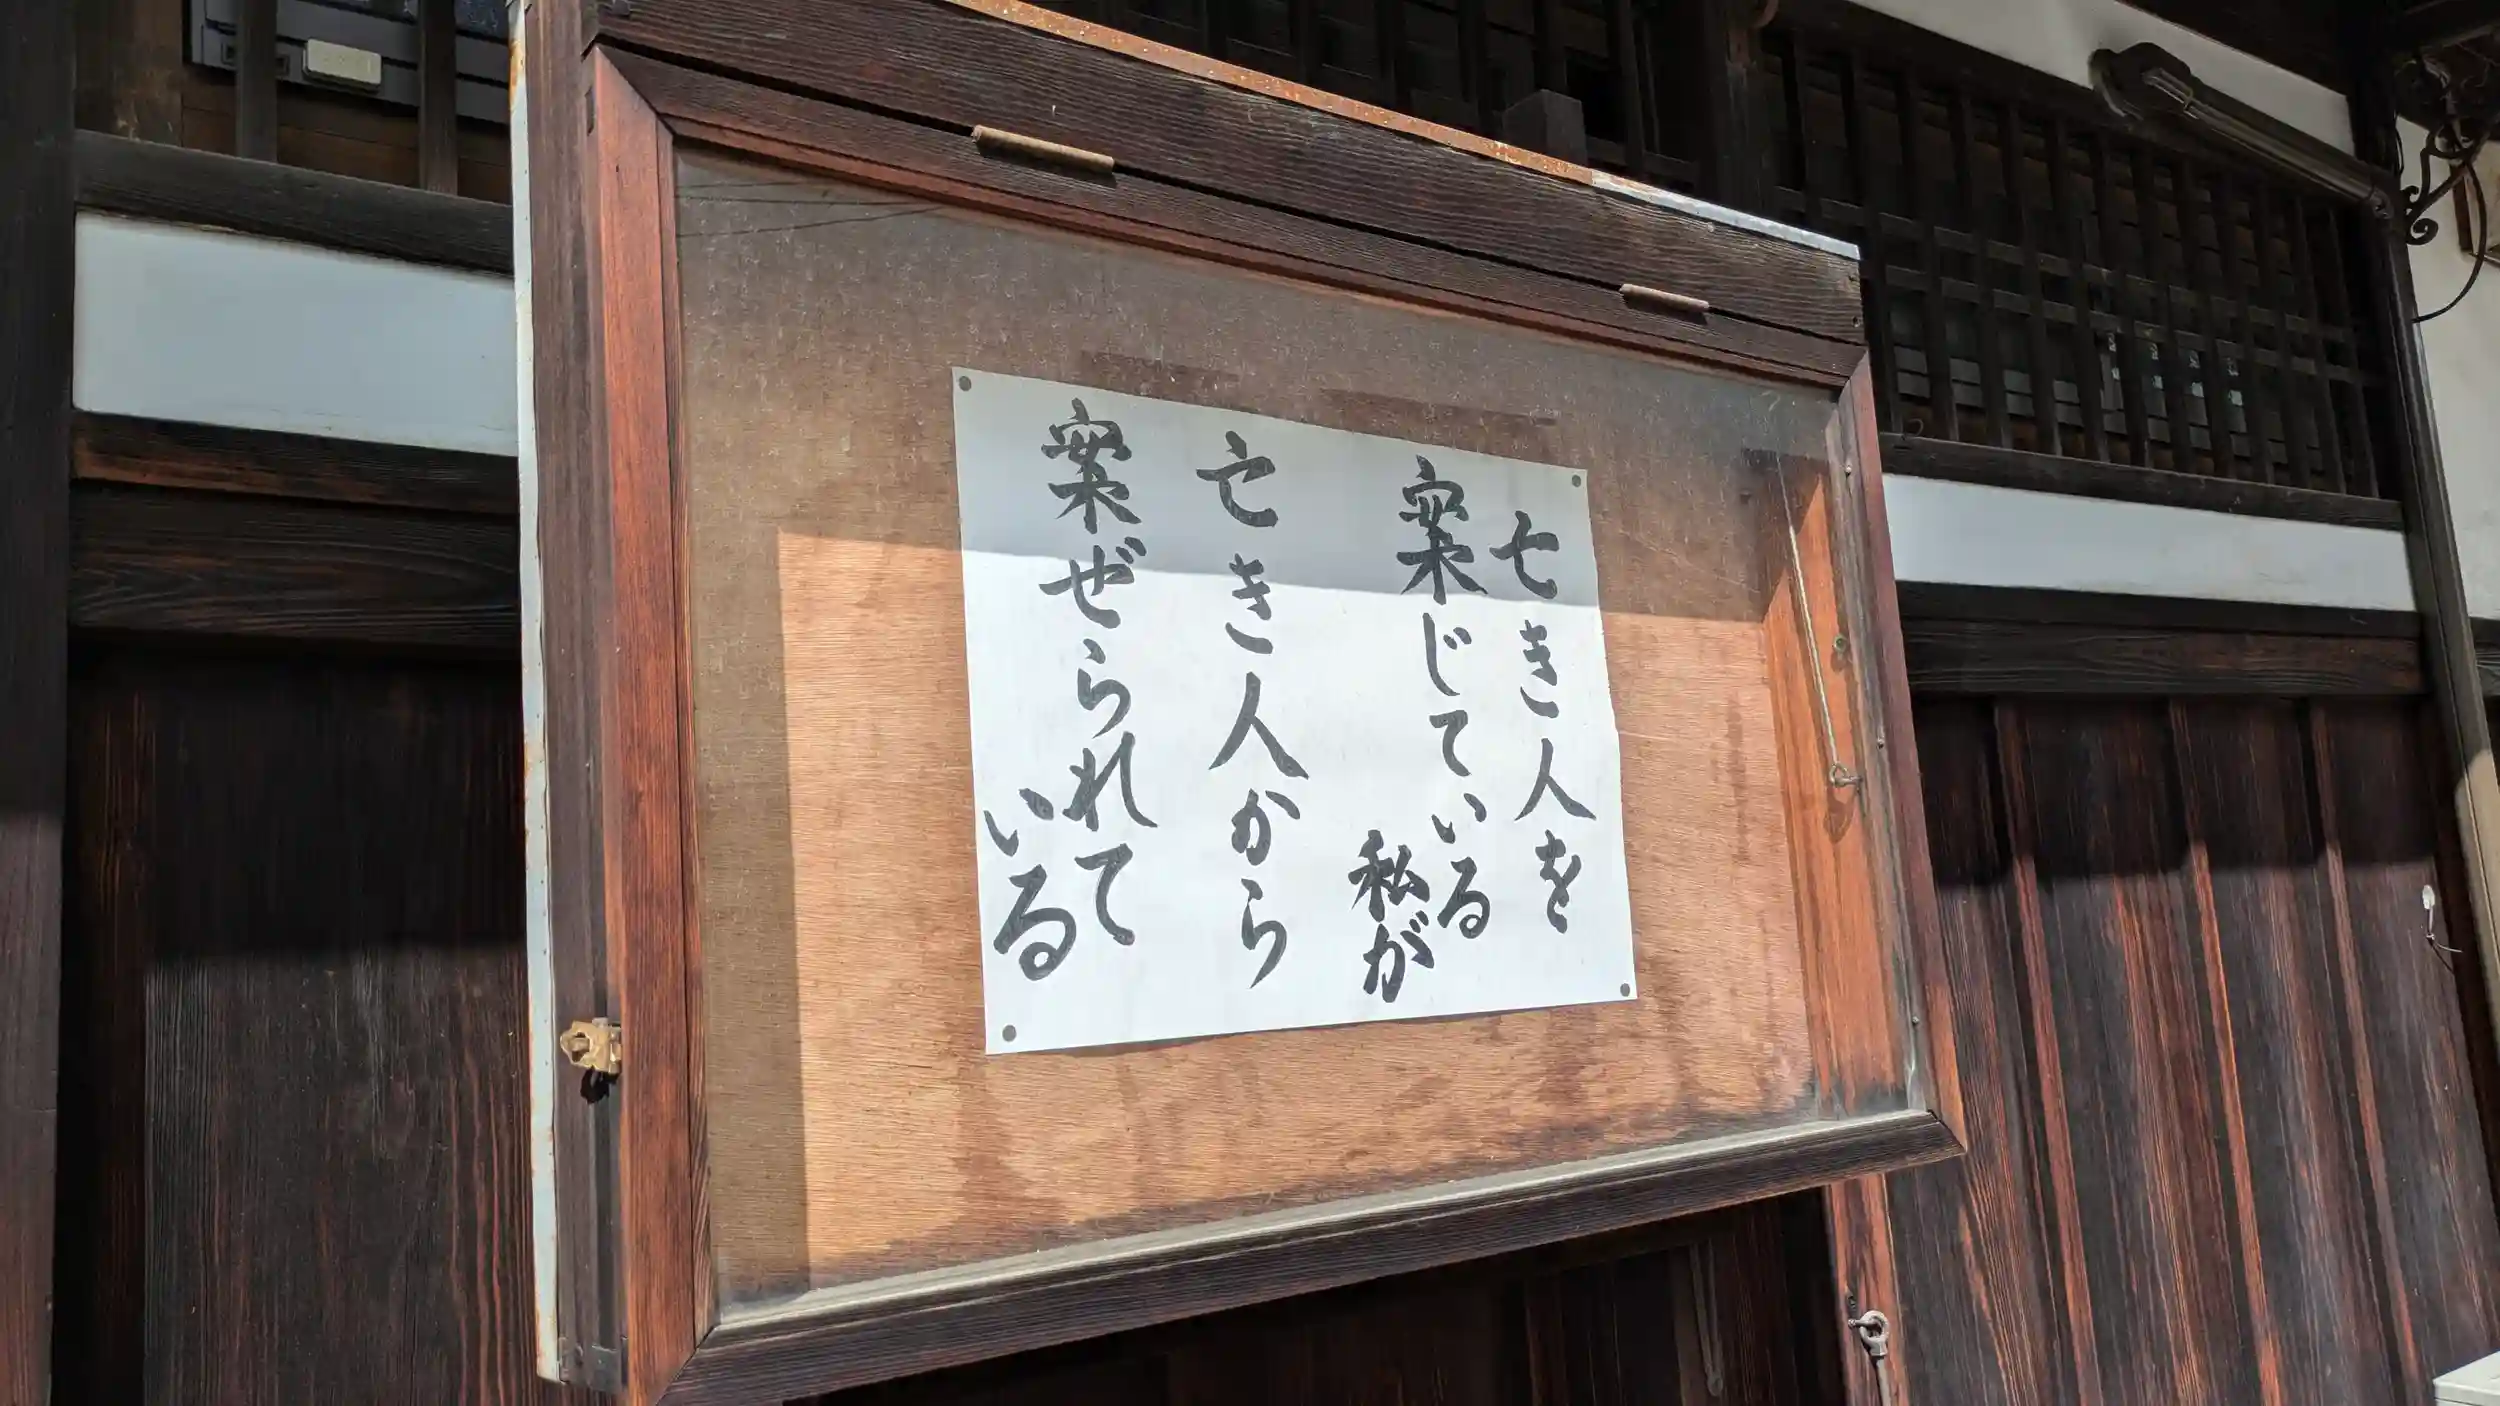 亡き人を
案じている
私が
亡き人から
案ぜられて
いる